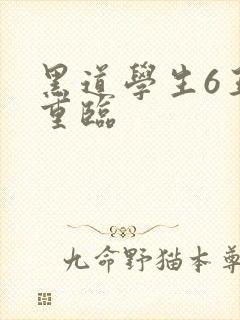 黑道學生6
重臨
九命野猫本尊